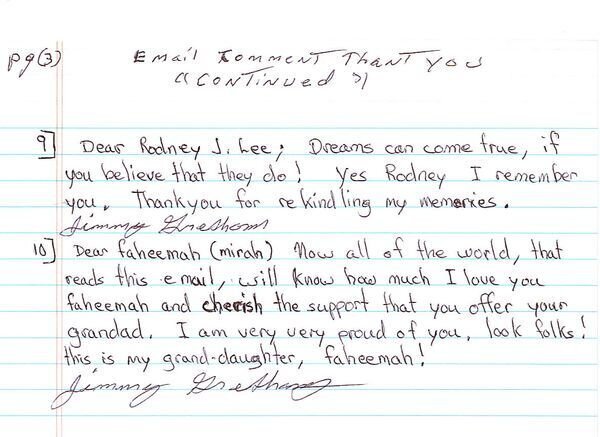 pg(3)
Email Comment Thank You
"(Continued")
9] Dear Rodney J. Lee; Dreams can come true, if
you believe that they do! Yes Rodney I remember
you. Thankyou for rekindling my memories.
Jimmy Gresham
10] Dear faheemah (mirah) Now all of the world, that
reads this email, will know how much I love you
faheemah and cherish the support that you offer your
grandad. I am very very proud of you, look folks!
this is my grand-daughter, faheemah!
Jimmy Gresham